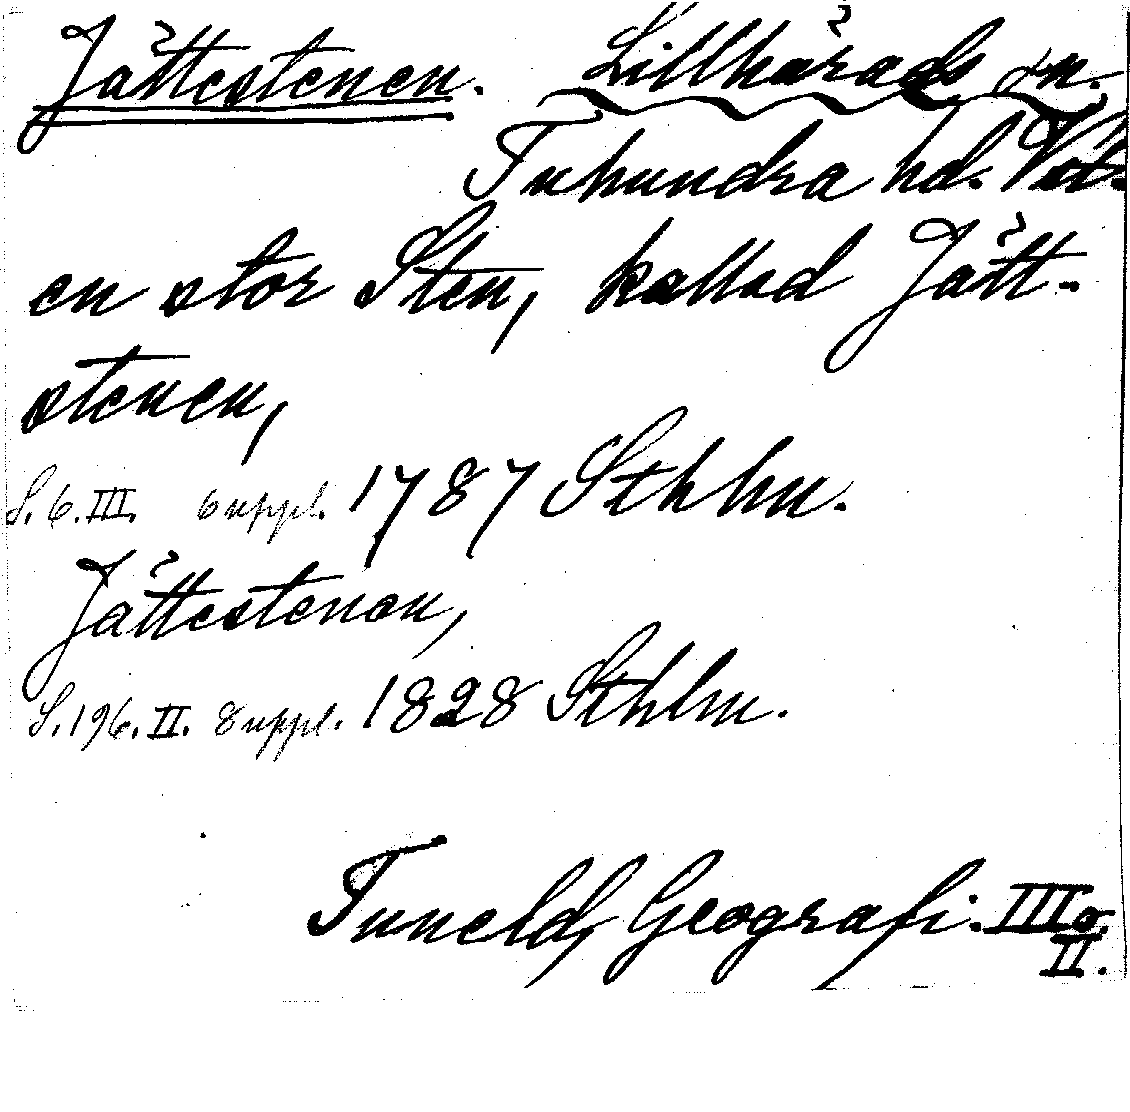 Jättestenen. Lillhärads sn.
Tuhundra hd. Vst.
en stor Sten, kallad Jätt-
stenen,
S. 6. III. suppl. 1787 Sthlm.
Jättestenen,
S. 196. II. suppl. 1828 Sthlm.
Tuneld, Geografi. III o.
II.